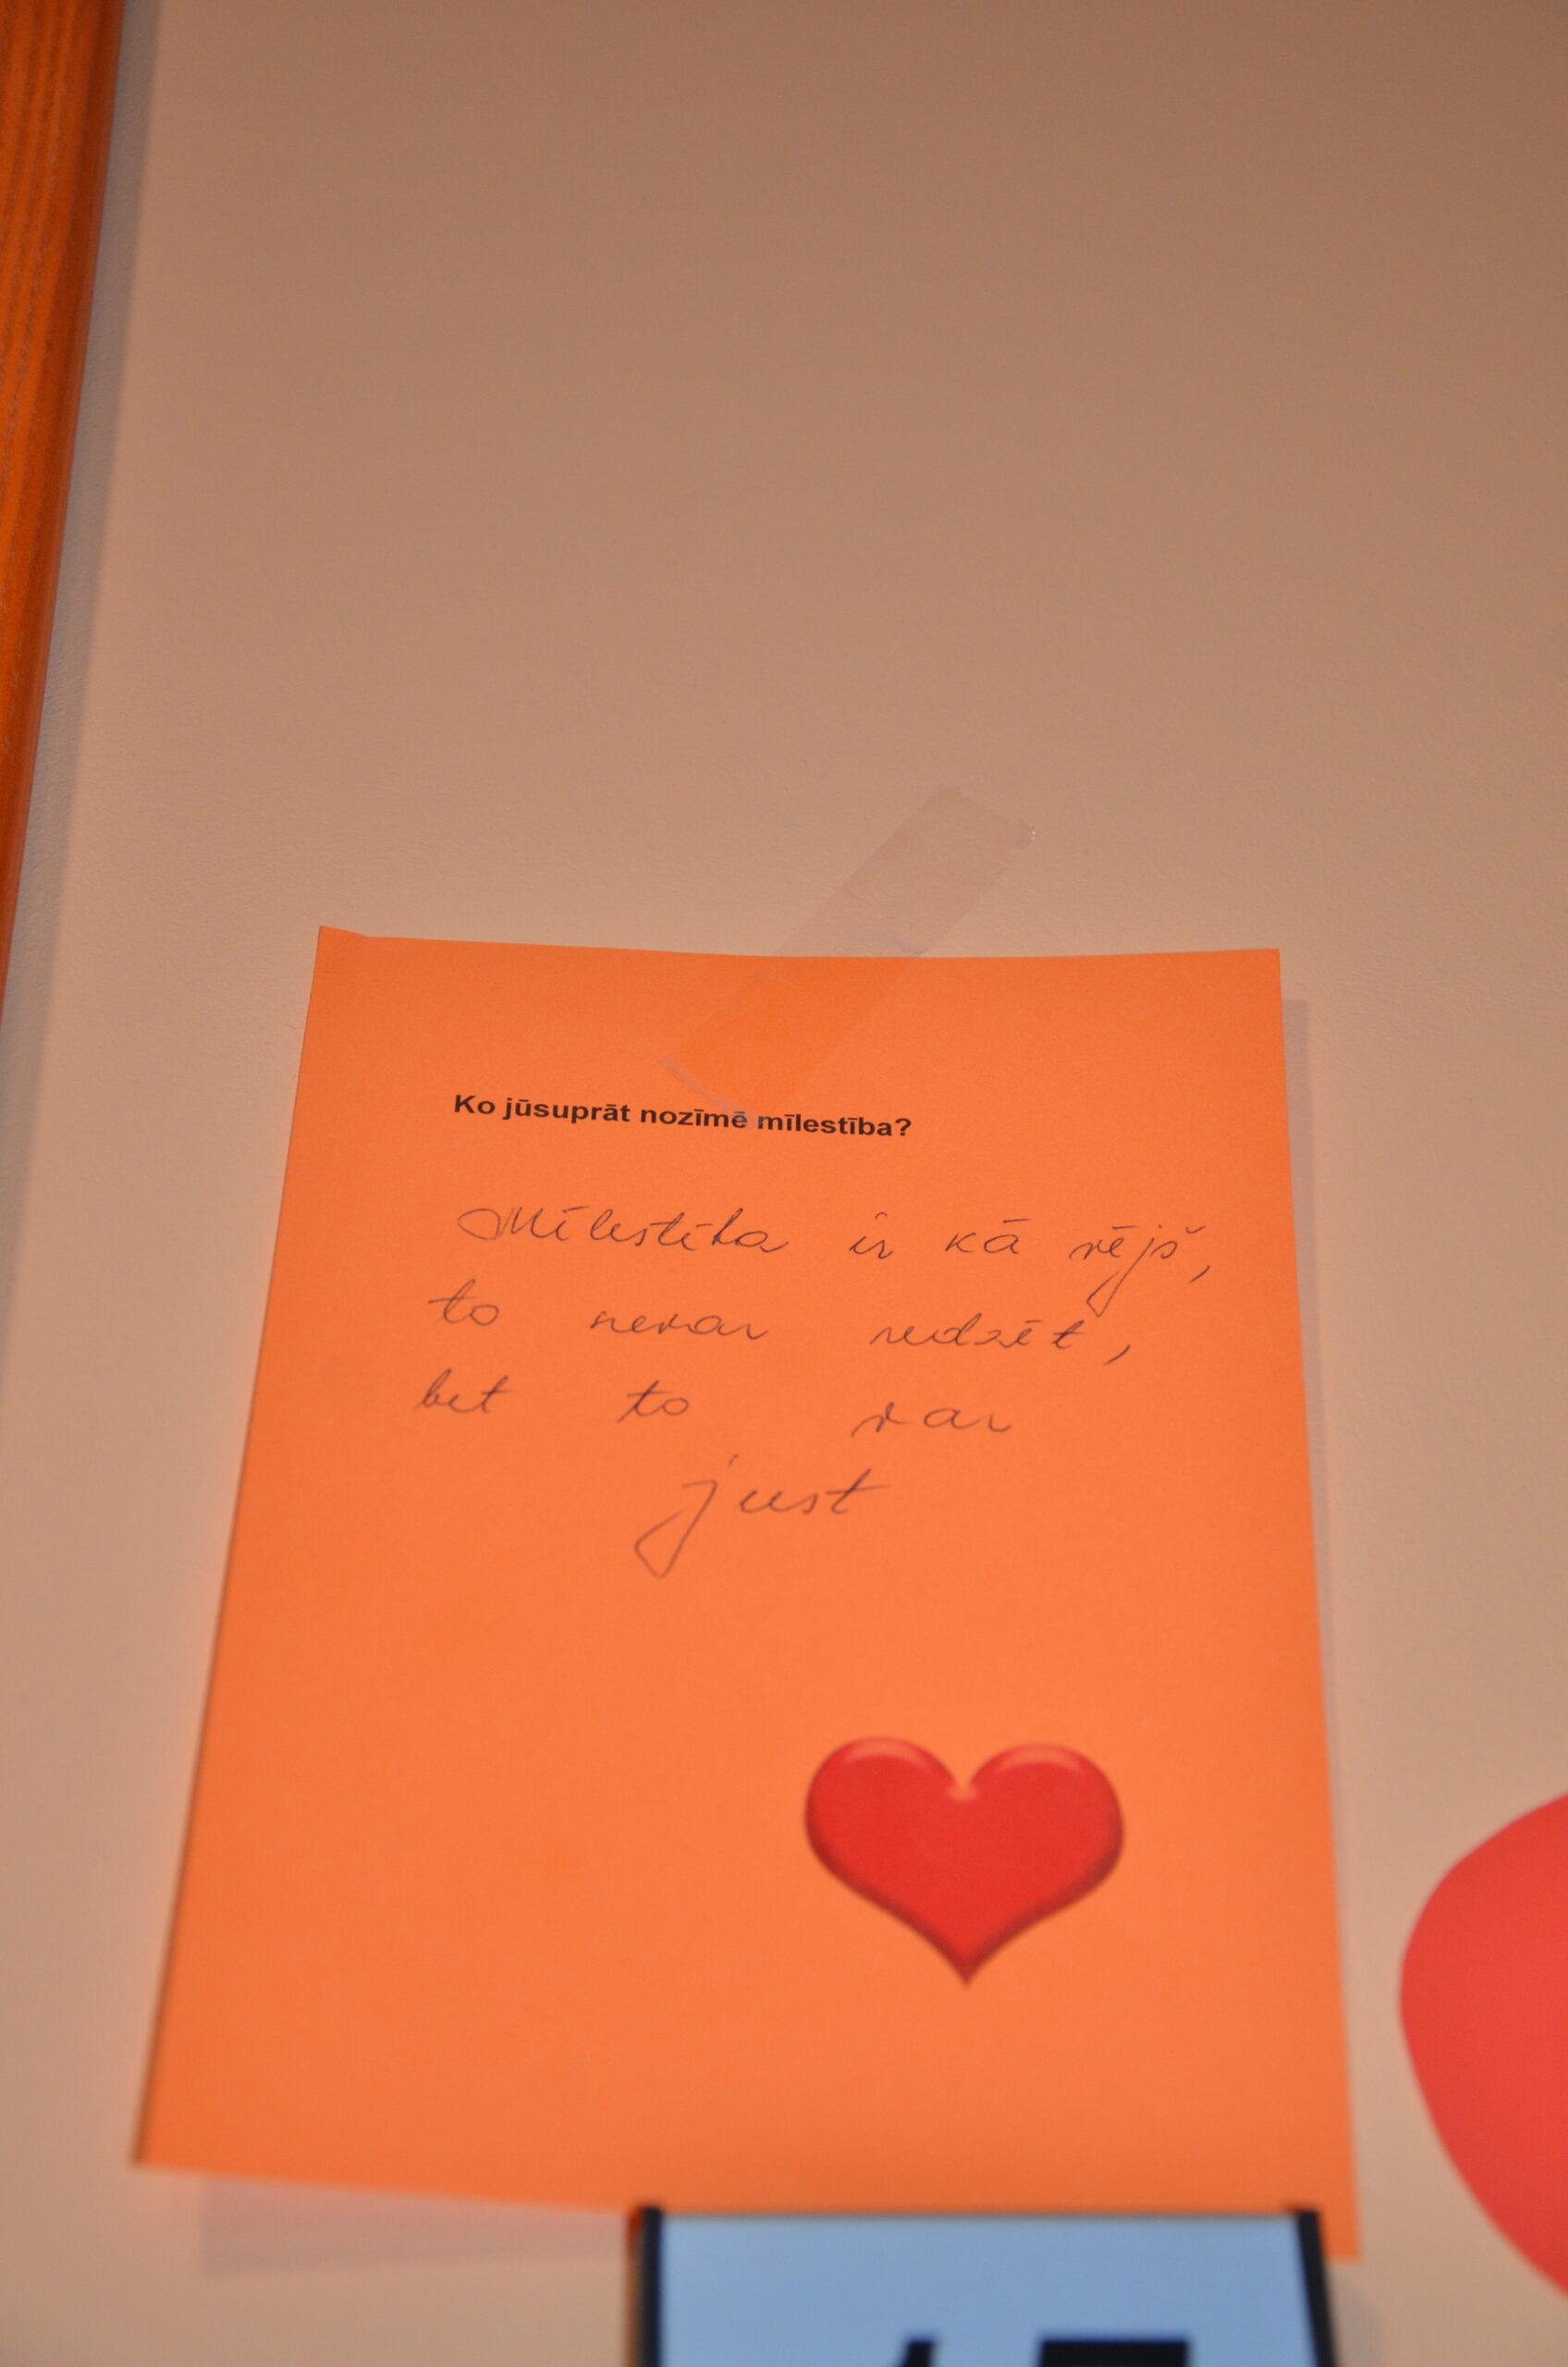 Ko jūsuprāt nozīmē mīlestība?
Mīlestība ir kā vējš,
to nevar redzēt,
bet to var
just